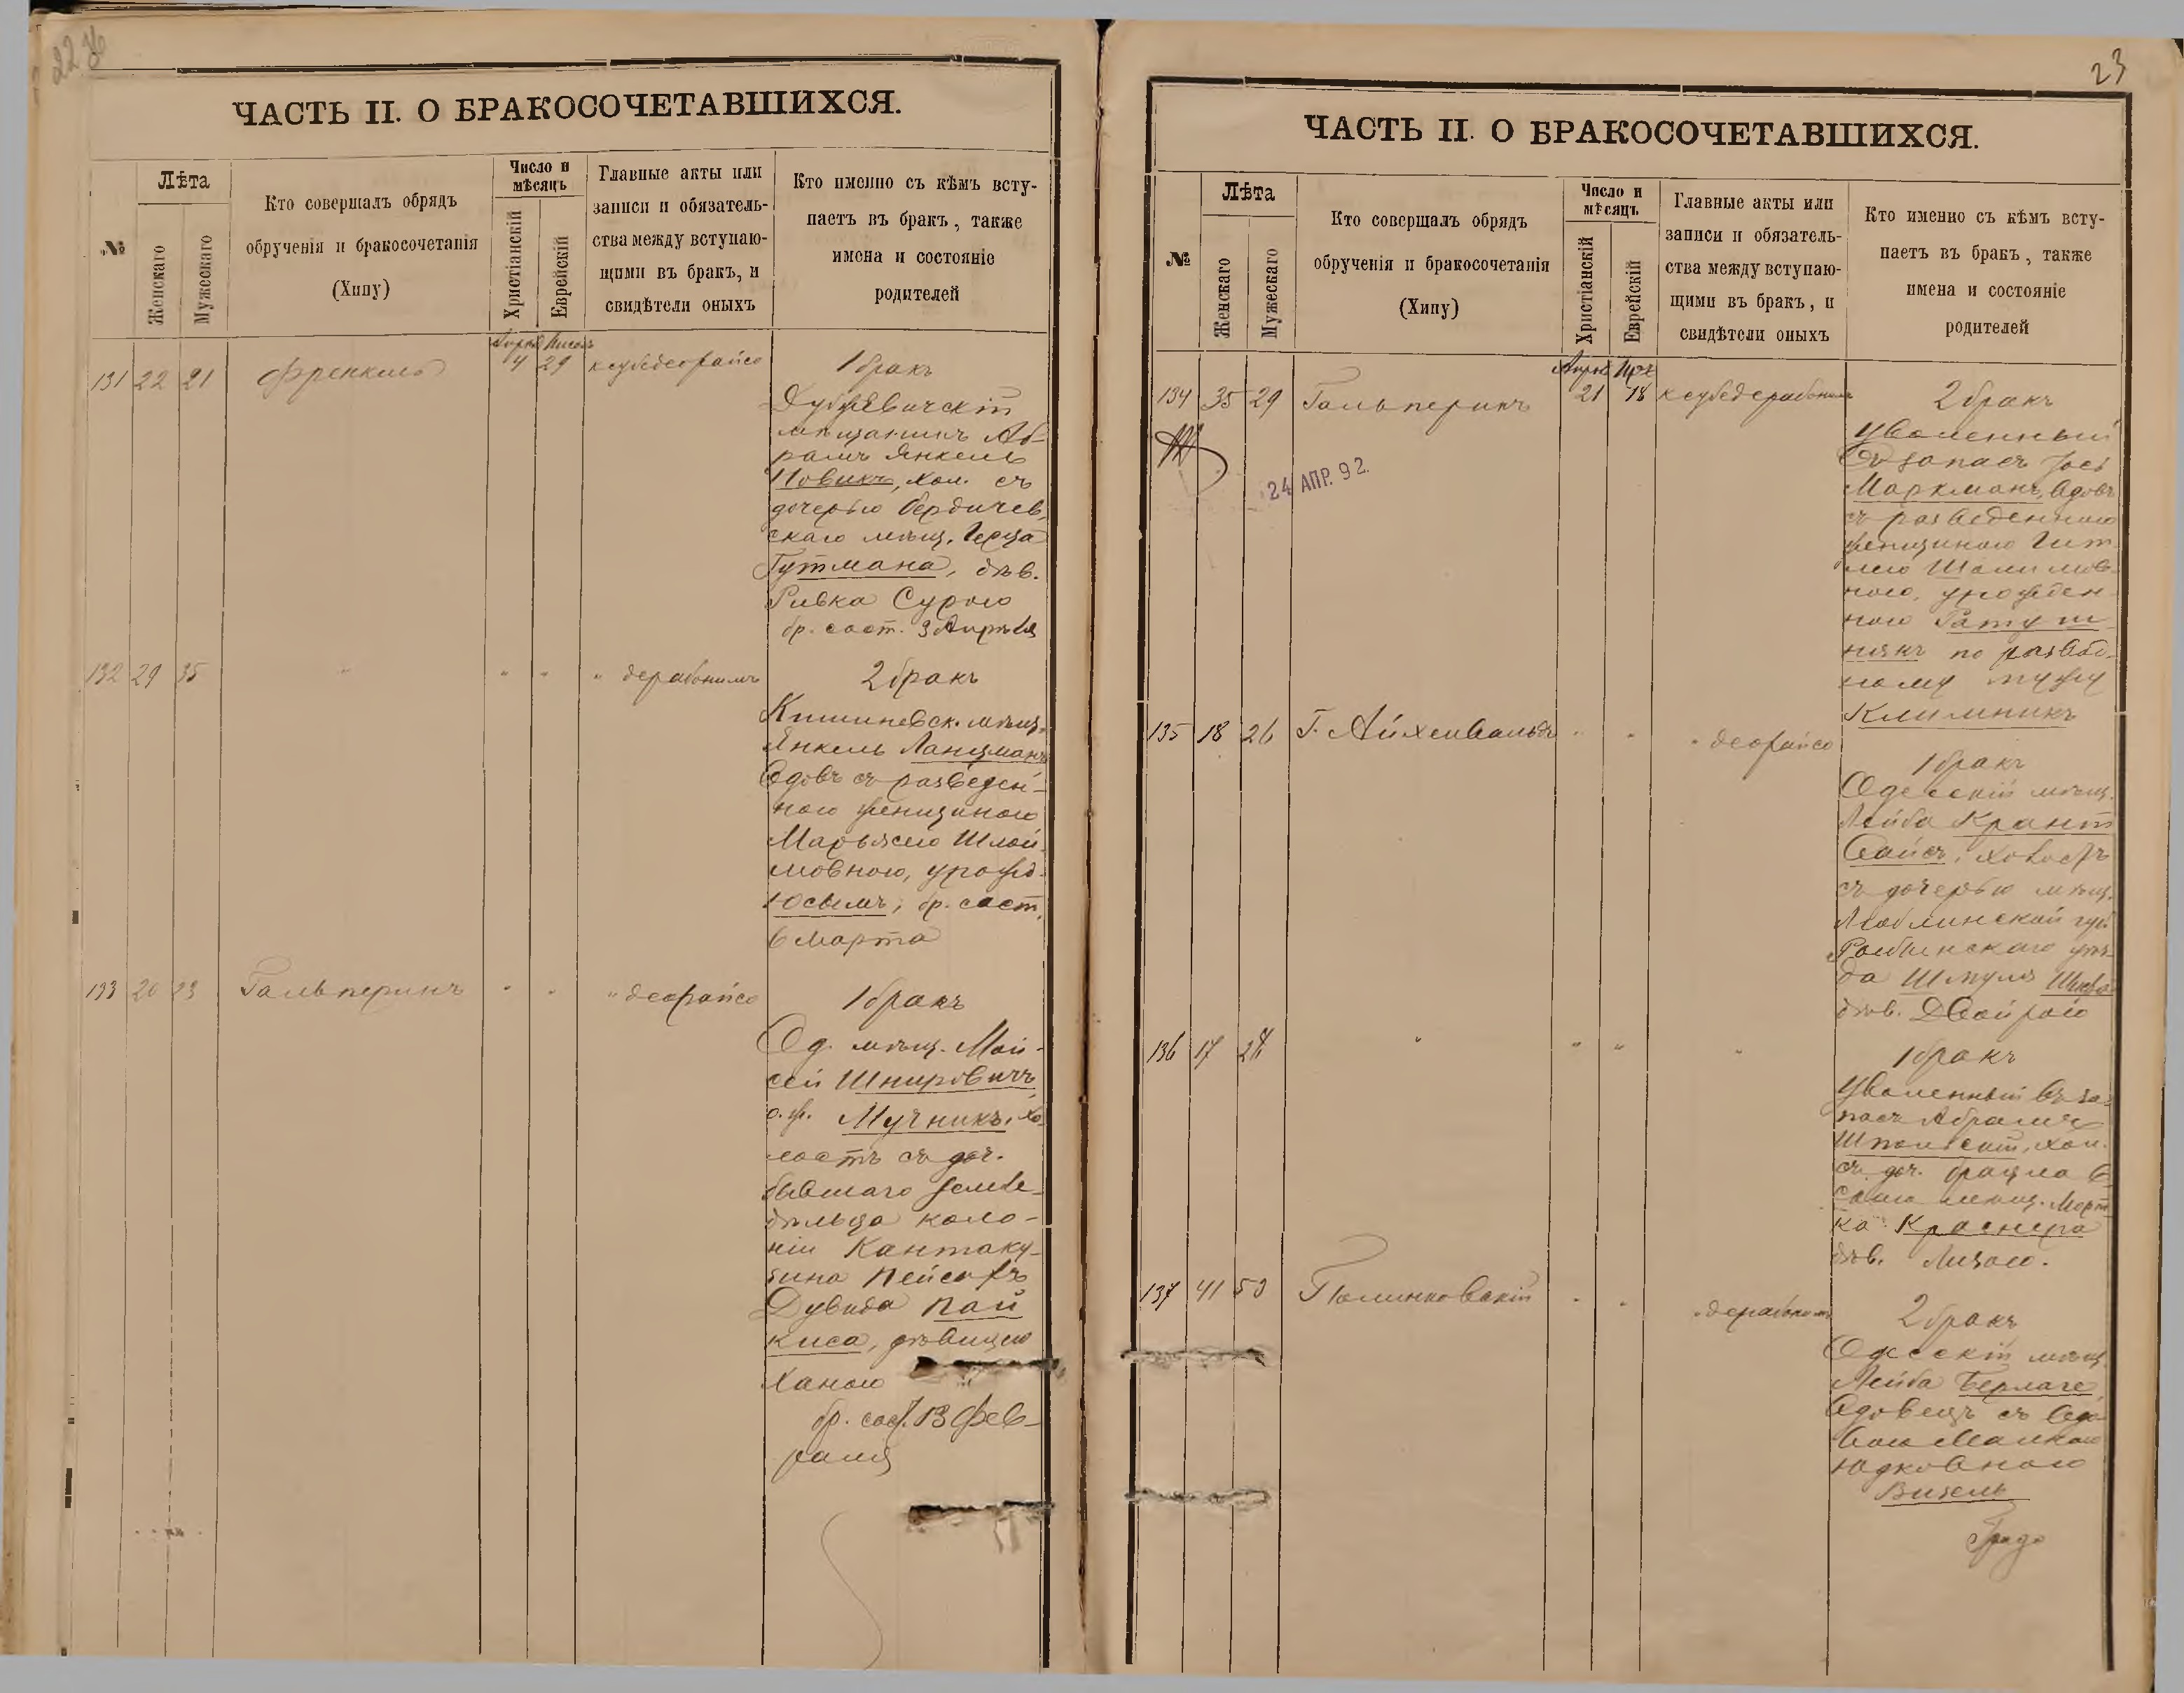 22 об
ЧАСТЬ II. О БРАКОСОЧЕТАВШИХСЯ.
№
Лѣта
Женскаго
Мужескаго
Кто совершалъ обрядъ
обрученія и бракосочетанія
(Хипу)
Число и
мѣсяцъ
Христіанскій
Еврейскій
Главные акты или
записи и обязатель-
ства между вступаю-
щими въ бракъ, и
свидѣтели оныхъ
Кто именно съ кѣмъ всту-
паетъ въ бракъ, также
имена и состояніе
родителей
131 22 21 Френкель
Апрѣл Нисонъ
4 29 ксубедеорайсо
1 бракъ
мѣщанинъ Аб-
рамъ Янкель
Новикъ, хол. съ
дочерью Бердичев-
скаго мѣщ. Герца
Гутмана, дѣв.
Ривка Сурою
бр. сост. 3 Апрѣля
132 29 35 " " " " дерабонимъ
2 бракъ
Кишиневск. мѣщ.
Янкель Ланцманъ
вдовъ съ разведен-
ною женщиною
Марьясею Шлой-
мовною, урожд.
Юсымъ; бр. сост.
6 Марта
133 20 23 Гальперинъ " " " деорайсо
1 бракъ
Од. мѣщ. Мой-
сей Шпировичъ
о. ж. Мучникъ, хо-
лостъ съ доч.
бывшаго земле-
дѣльца коло-
ніи Кантаку-
зина
Дувида Пай
киса, дѣвицею
Ханою
бр. сост. 13 Фев-
раля
23
ЧАСТЬ II. О БРАКОСОЧЕТАВШИХСЯ.
№
Лѣта
Женскаго
Мужескаго
Кто совершалъ обрядъ
обрученія и бракосочетанія
(Хипу)
Число и
мѣсяцъ
Христіанскій
Еврейскій
Главные акты или
записи и обязатель-
ства между вступаю-
щими въ бракъ, и
свидѣтели оныхъ
Кто именно съ кѣмъ всту-
паетъ въ бракъ, также
имена и состояніе
родителей
134 35 29 Гальперинъ
24 АПР. 92.
21
ксубедерабонимъ
2 бракъ
Уволенный
въ запасъ Іось
Маркманъ, вдовъ
съ разведенною
женщиною Гит
лею Шолимов-
ною, урожден-
ною Ратуш
някъ по развод-
ному мужу
Климникъ
135 18 26 Г. Айхенвальдъ " " " деорайсо
1 бракъ
Одесскій мѣщ.
Лейба Крант
вайсъ, холостъ
съ дочерью мѣщ.
Люблинской губ.
уѣз-
да Шмуля
дѣв. Двойрою
136 17 " " " "
1 бракъ
Уволенный въ за-
пасъ Абрамъ
Шпольскій, хол.
съ доч. брацлав-
скаго мѣщ. Морт-
ка Краснера
дѣв. Лизою.
137 41 50 Полинковскій " " " дерабоним
2 бракъ
Одесскій мѣщ.
Лейба Берлаге,
вдовецъ съ вдо-
вою Малкою
Юдковною
Визель